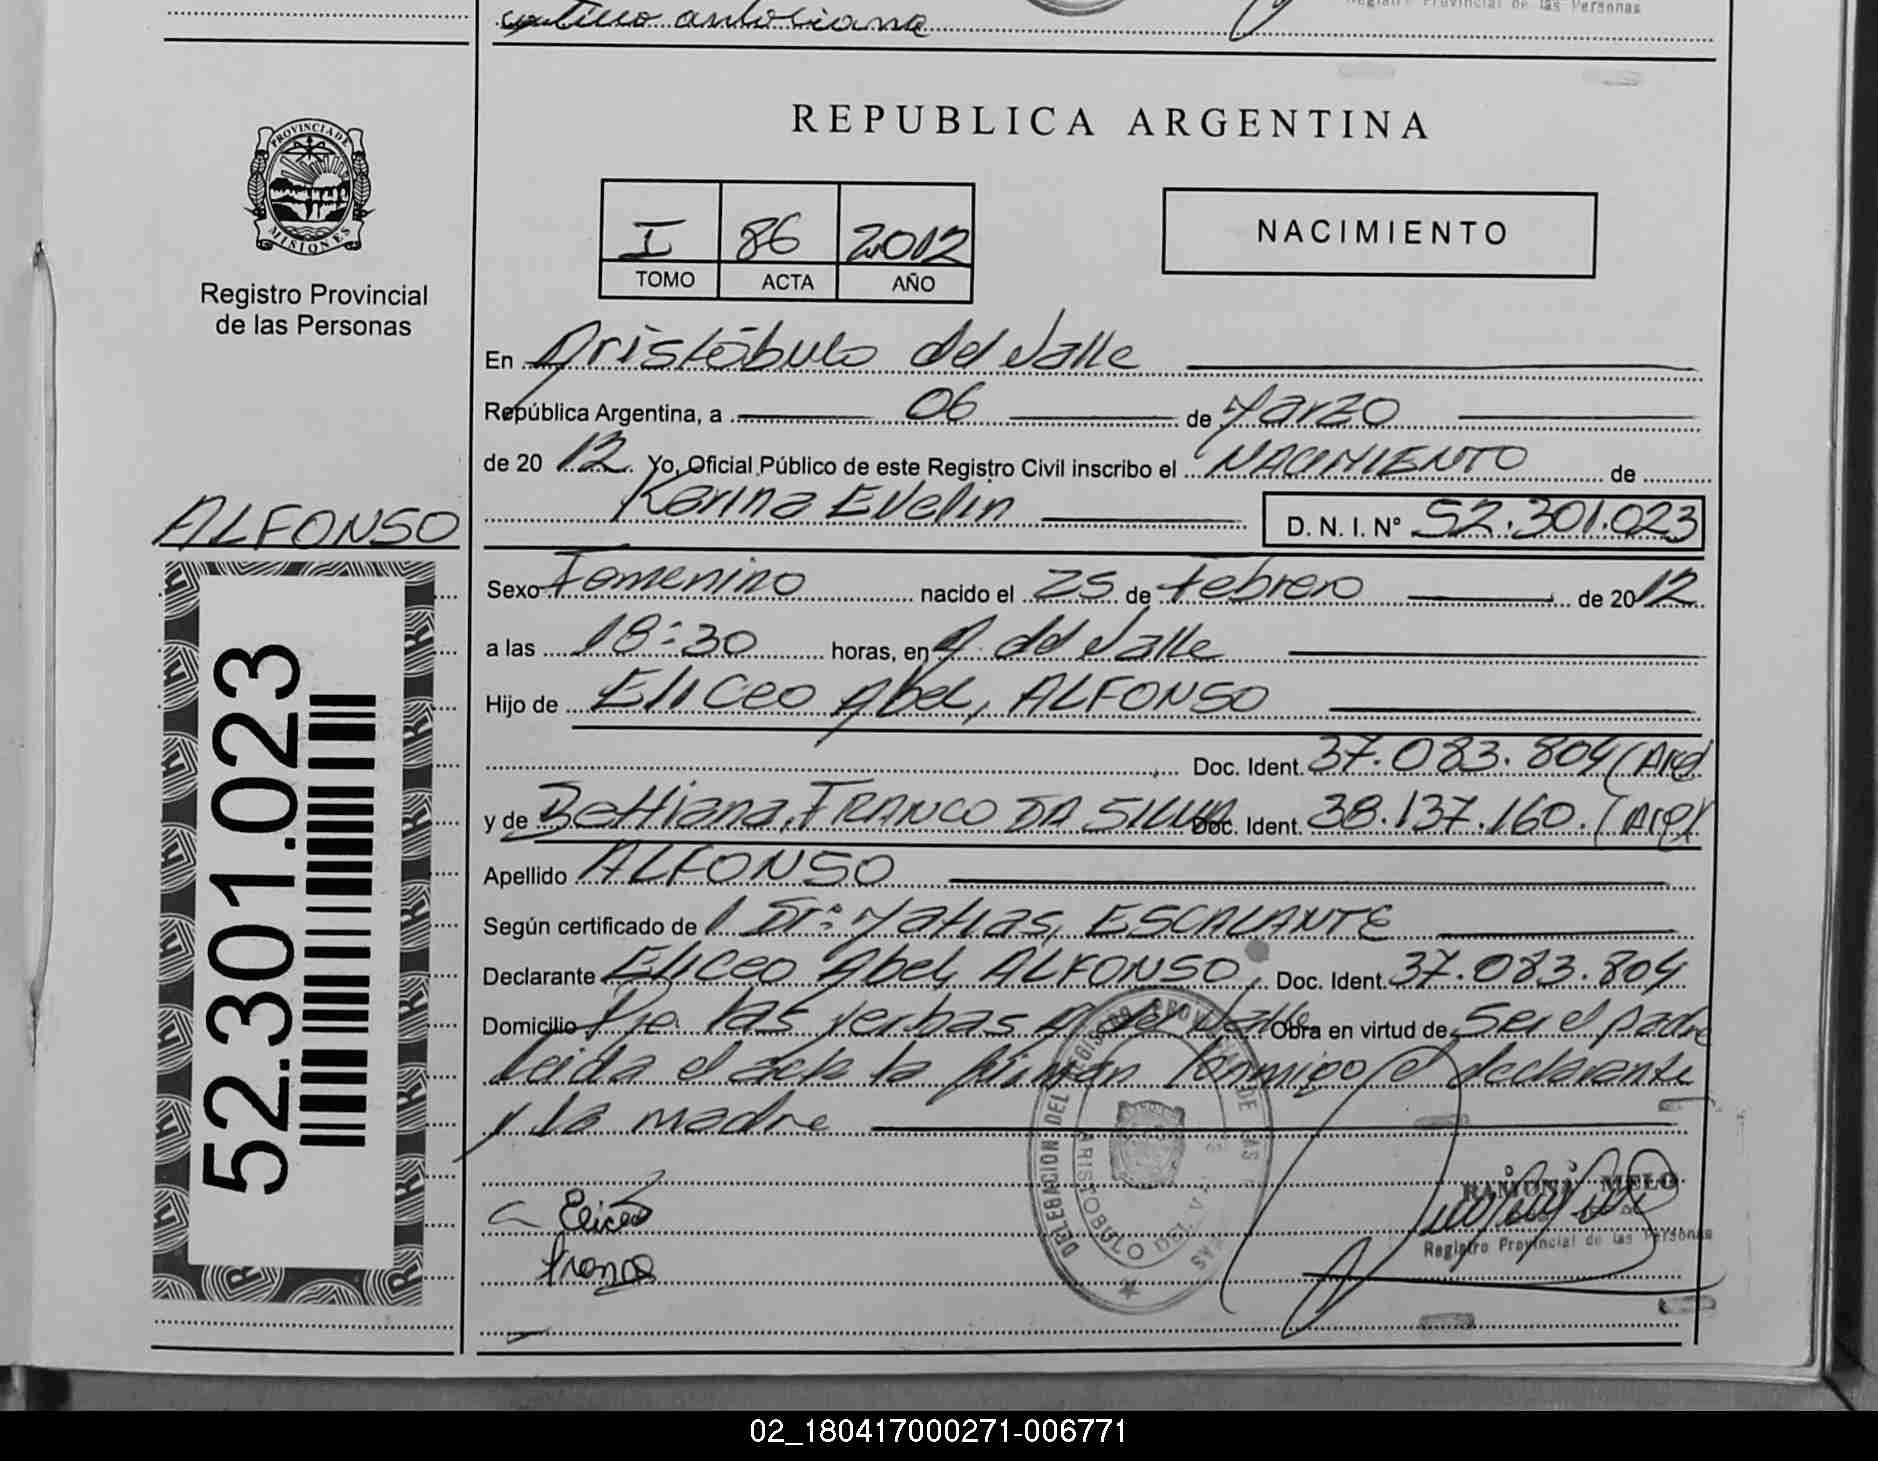 antoliana
Registro Provincial de las Personas
REPUBLICA ARGENTINA
PROVINCIA DE
MISIONES
Registro Provincial
de las Personas
I 86 2012
TOMO ACTA AÑO
NACIMIENTO
En Aristóbulo del Valle
República Argentina, a 06 de Marzo
de 20 12 Yo, Oficial Público de este Registro Civil inscribo el NACIMIENTO de
Karina Evelin D. N. I. Nº 52.301.023
ALFONSO
52.301.023
Sexo Femenino nacido el 25 de Febrero de 2012
a las 18:30 horas, en A. del Valle
Hijo de Eliceo Abel, ALFONSO
Doc. Ident. 37.083.804 (Arg)
y de Bettiana, FRANCO DA SILVA Doc. Ident. 38.137.160. (Arg)
Apellido ALFONSO
Según certificado de Dr: Matias, ESCALANTE
Declarante Eliceo Abel, ALFONSO Doc. Ident. 37.083.804
Domicilio Pje. las yerbas A. del Valle Obra en virtud de Ser el padre
Leida el acta la firman conmigo el declarante
y la madre
DELEGACION DEL REGISTRO PROVINCIAL DE LAS
ARISTOBULO DEL VALLE
Eliceo
Franco
RAMONA MELO
Registro Provincial de las Personas
02_180417000271-006771